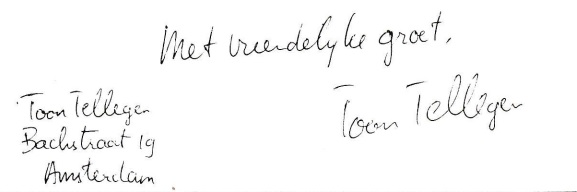 Met vriendelyke groet,
Toon Tellegen
Toon Tellegen
Bachstraat 19
Amsterdam